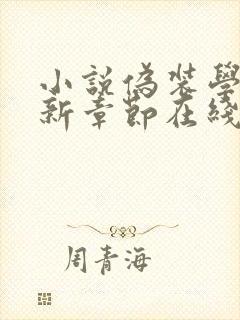 小說偽裝學
新章節在綫
周青海